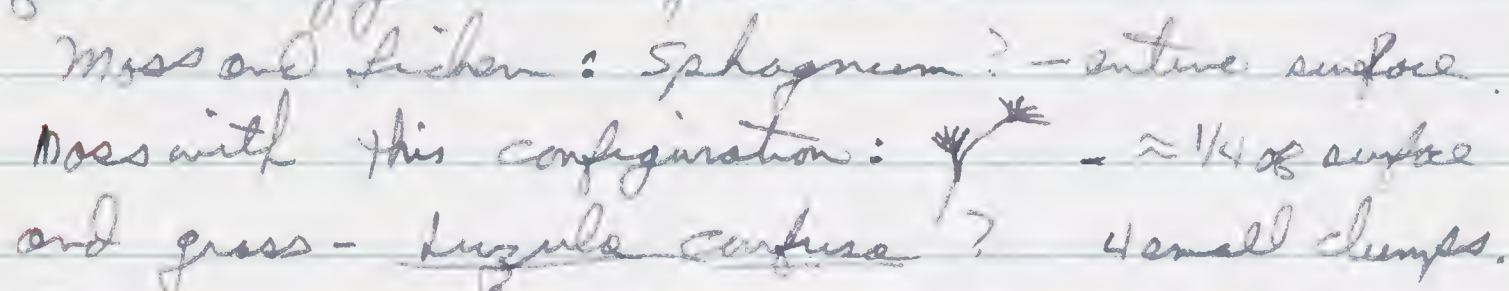 Moss and Lichen : Sphagnum? - entire surface.
Moss with this configuration: - ≈ 1/4 of surface
and grass - Luzula confusa ? 4 small clumps.